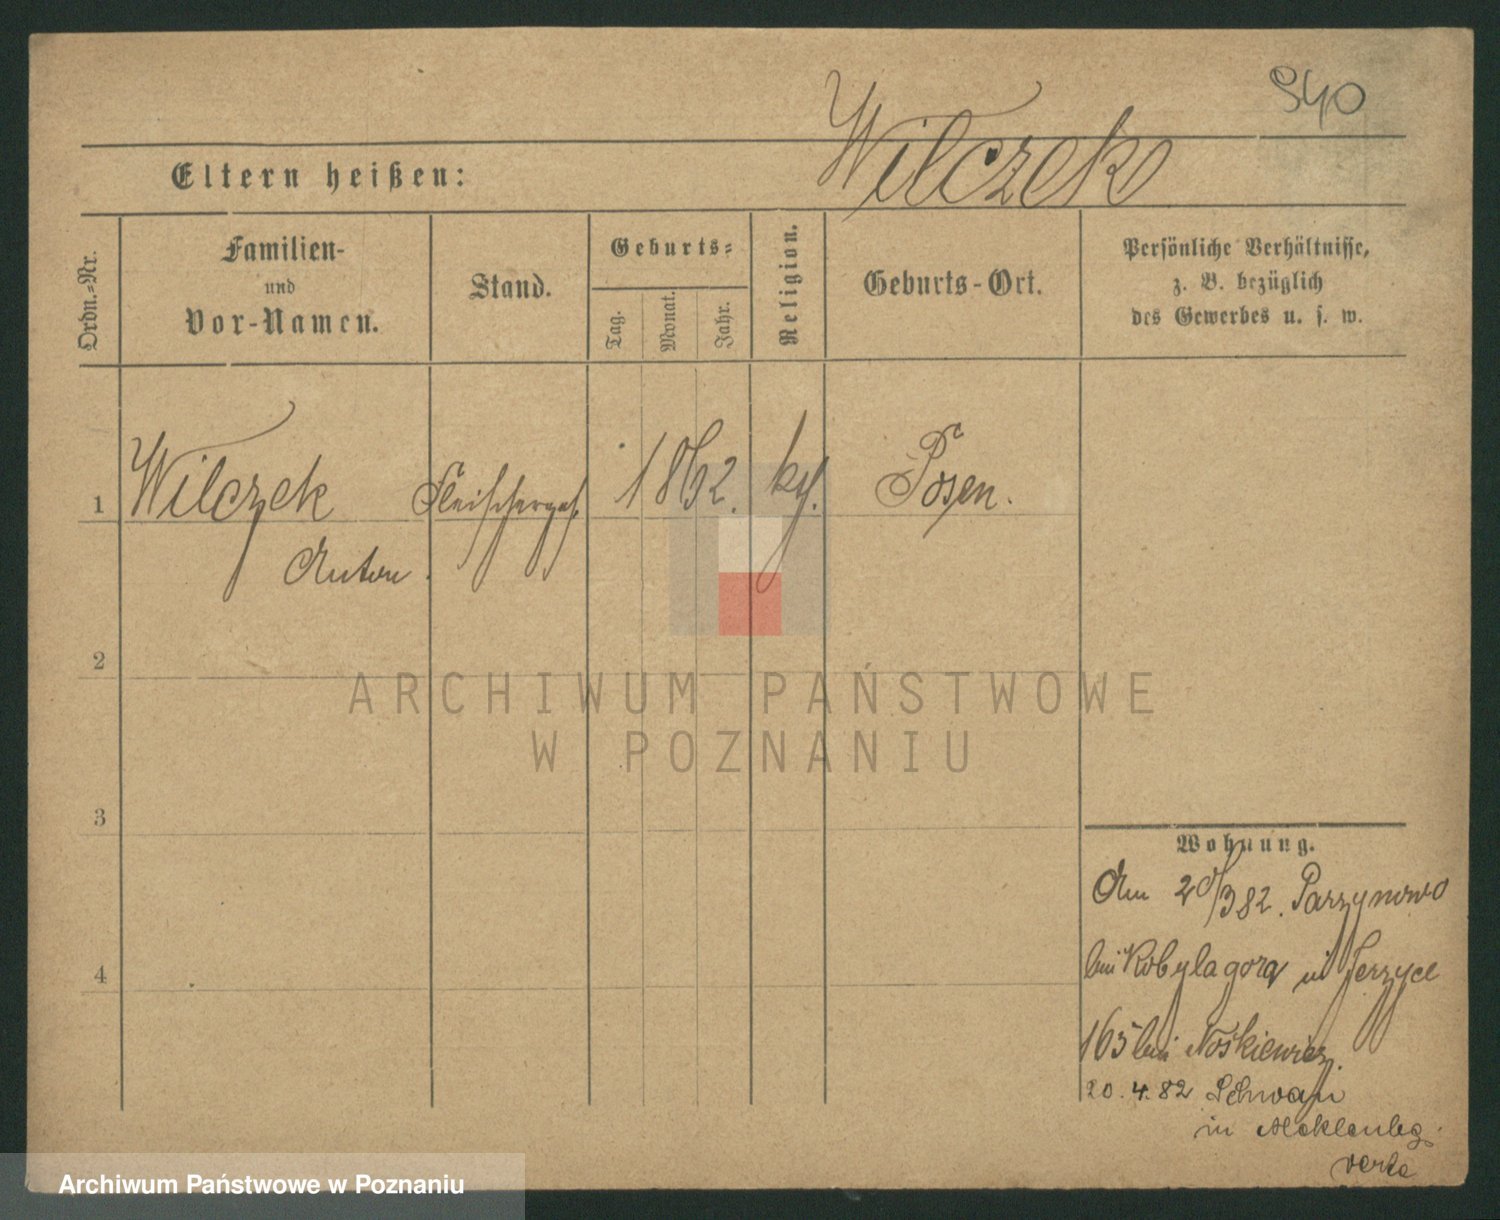 940
Wilczek
Eltern heißen:
Ordn.-Nr.
Familien-
und
Vor-Namen.
Stand.
Geburts-
Tag.
Monat.
Jahr.
Religion.
Geburts-Ort.
Persönliche Verhältnisse,
z. B. bezüglich
des Gewerbes u. s. w.
1 Wilczek Fleischerges. 1862. kth. Posen.
Anton.
2
3
4
ARCHIWUM PAŃSTWOWE
W POZNANIU
Wohnung.
Am 20/3 82. Parzynowo
bei Kobylagora in Jerzyce
165 bei Noskiewicz.
20. 4. 82 Schwan
in Mecklenbg.
verte
Archiwum Państwowe w Poznaniu